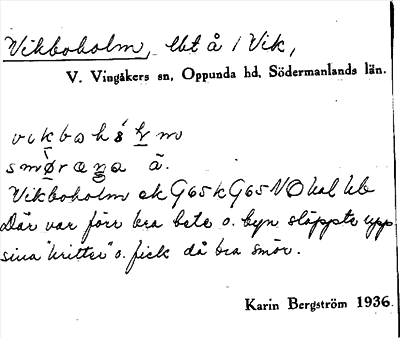 Vikboholm, lbt å / Vik,
V. Vingåkers sn, Oppunda hd, Södermanlands län.
smøræna ä.
Vikboholm ek G65 k G65 NO
Där var förr bra bete o. byn släppte upp
sina "kritter" o. fick då bra smör.
Karin Bergström 1936